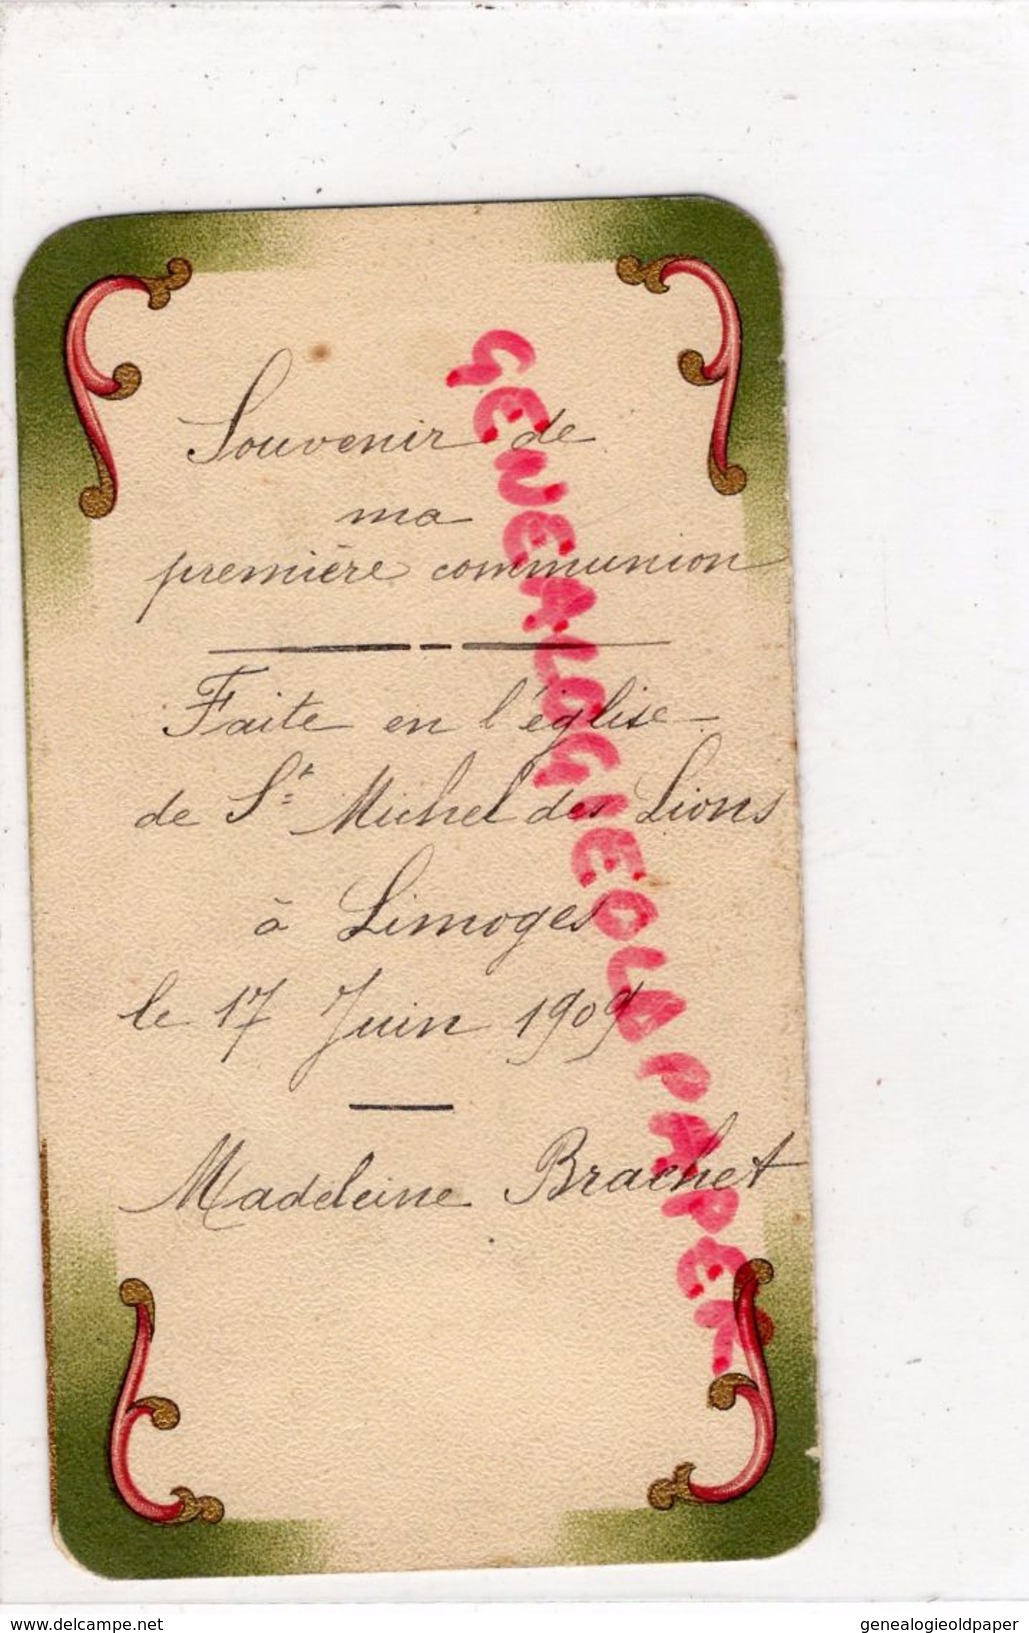 Souvenir de
ma
première communion
Faite en l'église
de St Michel des Lions
à Limoges
le 17 Juin 1909
Madeleine Brachet
GENEALOGIEOLDPAPER
delcampe.net
genealogieoldpaper